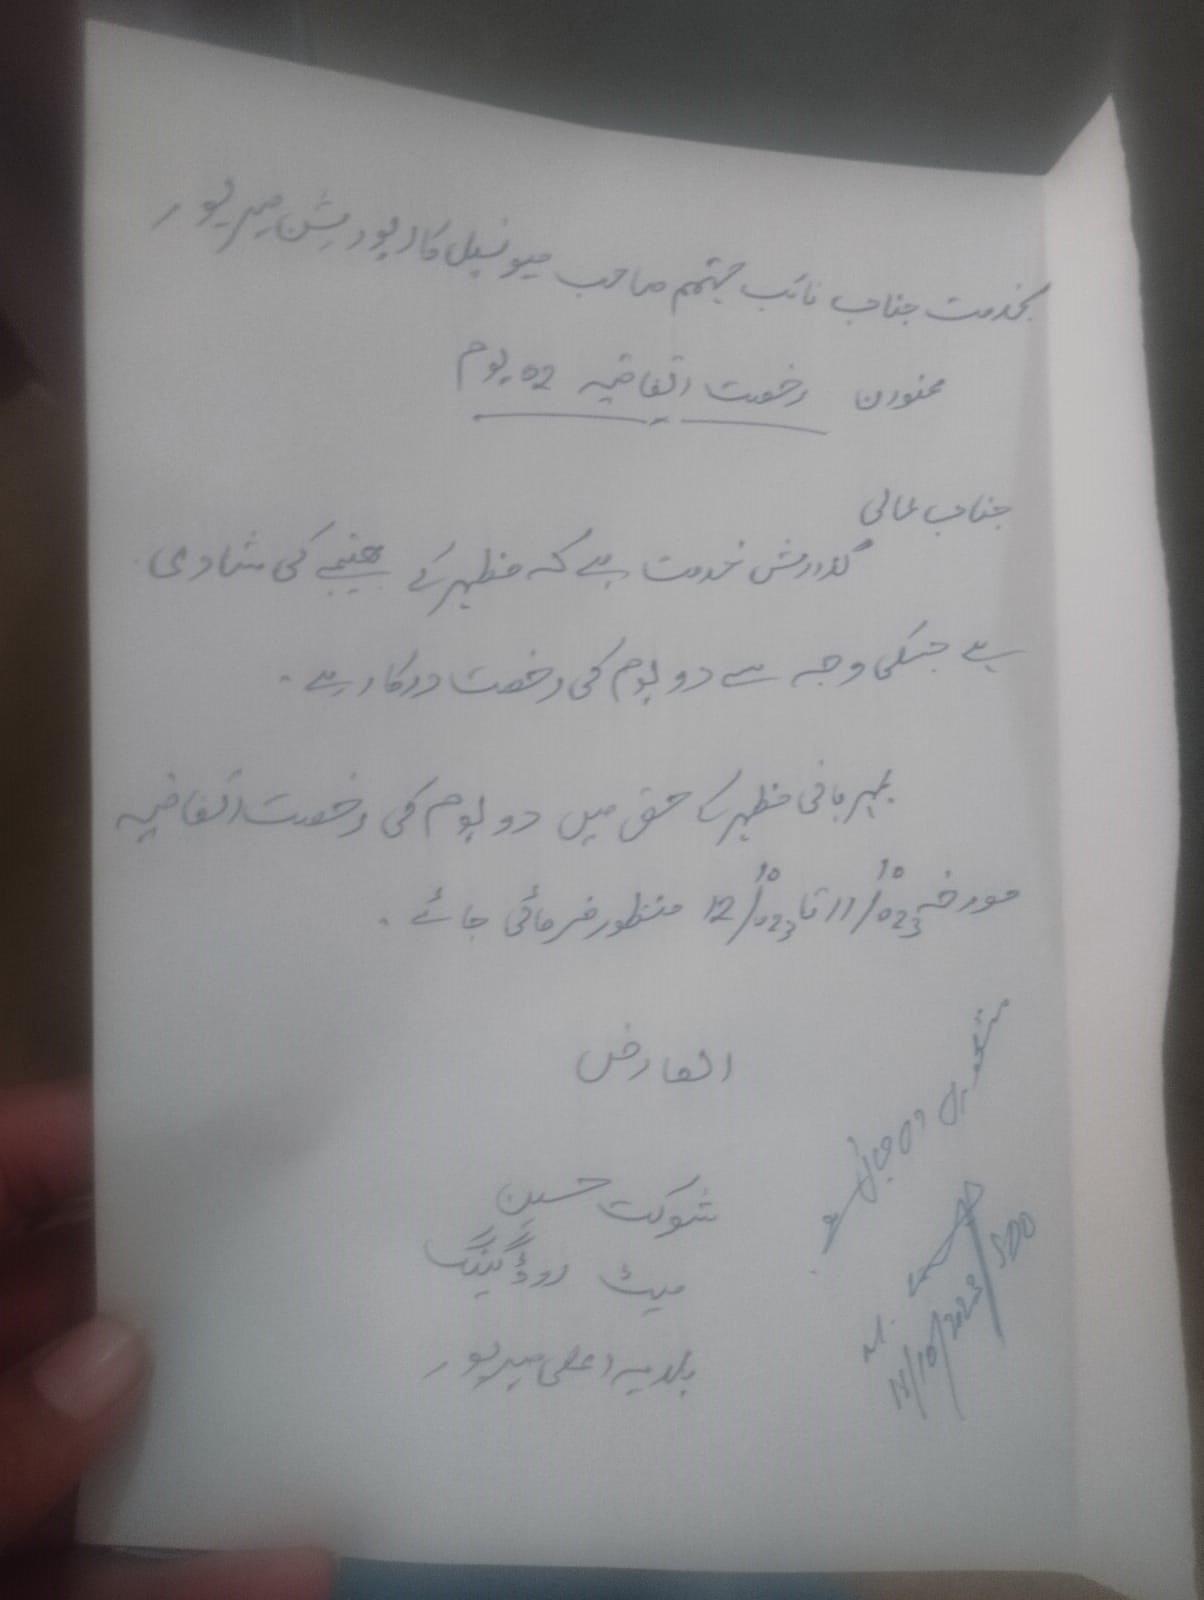 بخدمت جناب نائب مہتمم صاحب میونسپل کارپوریشن میرپور
عنوان رخصت اتفاقیہ 02 یوم
جناب عالی
گذارش خدمت ہے کہ مظہر کے بھتیجے کی شادی
ہے جسکی وجہ سے دو یوم کی رخصت درکار ہے۔
بمہربانی مظہر کے حق میں دو یوم کی رخصت اتفاقیہ
مورخہ 11/10/023 تا 12/10/023 منظور فرمائی جائے۔
العارض
شوکت حسین
میٹ روڈ گینگ
بلدیہ اعلی میرپور
SDO
11/10/2023